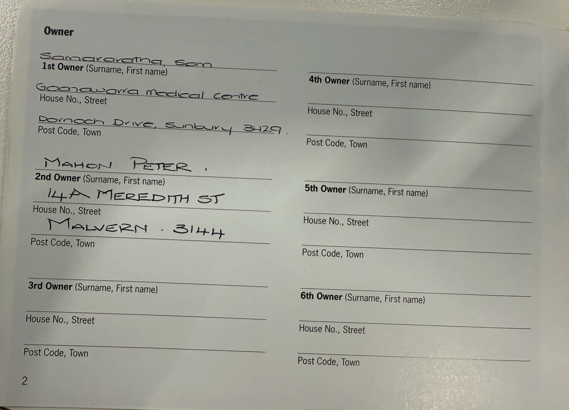 Owner
Samararatna, Sam
1st Owner (Surname, First name)
Goonawarra medical centre
House No., Street
Dornoch Drive, Sunbury 3429.
Post Code, Town
MAHON PETER.
2nd Owner (Surname, First name)
14A MEREDITH ST
House No., Street
MALVERN. 3144
Post Code, Town
3rd Owner (Surname, First name)
House No., Street
Post Code, Town
2
4th Owner (Surname, First name)
House No., Street
Post Code, Town
5th Owner (Surname, First name)
House No., Street
Post Code, Town
6th Owner (Surname, First name)
House No., Street
Post Code, Town